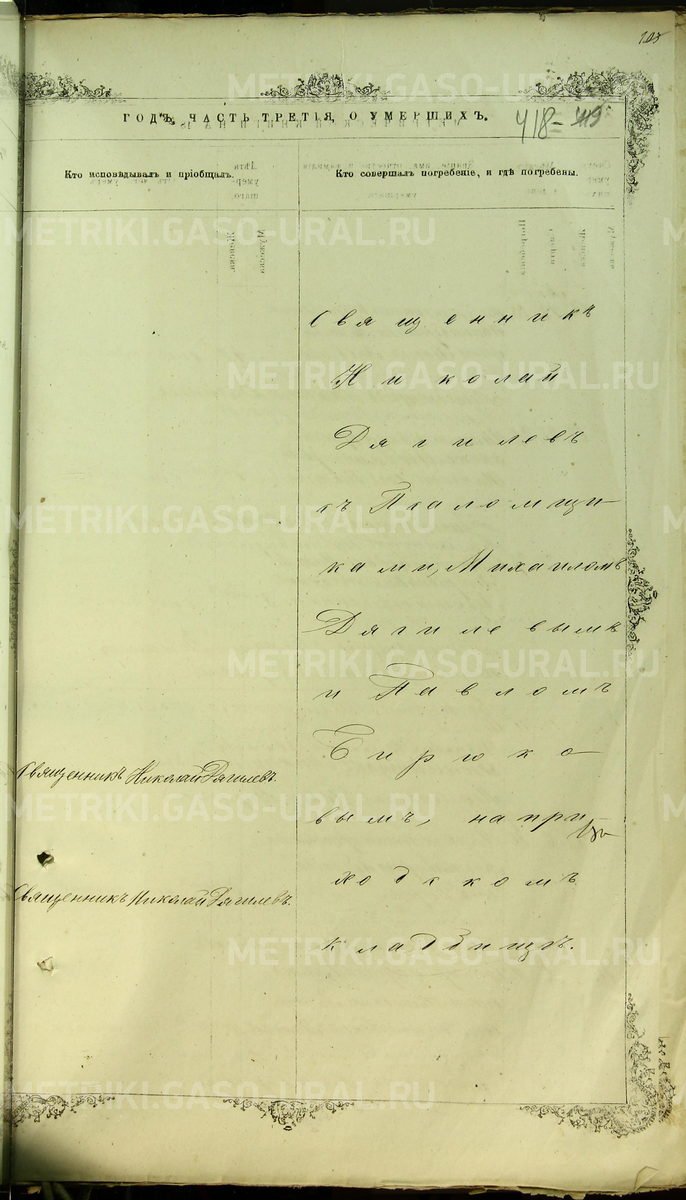 ГОДЪ, ЧАСТЬ ТРЕТІЯ, О УМЕРШИХЪ.
418
Кто исповѣдывалъ и пріобщалъ.
Кто совершалъ погребеніе, и гдѣ погребены.
Священникъ
Николай
Дягилевъ
съ Псаломщи-
ками, Михаиломъ
Дягилевымъ
и Павломъ
Бирюко-
вымъ, на при
ходскомъ
кладбищѣ.
Священникъ Николай Дягилевъ.
Священникъ Николай Дягилевъ.
METRIKI.GASO-URAL.RU